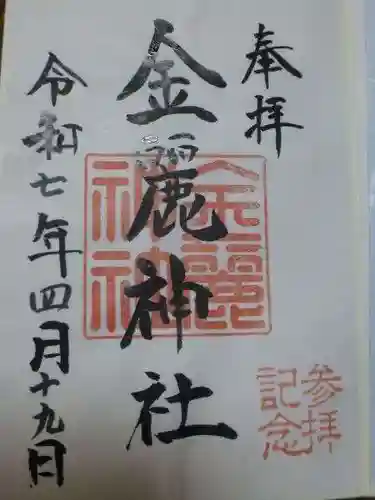 奉拝
金麗神社
金麗神社
令和七年四月十九日
参拝
記念